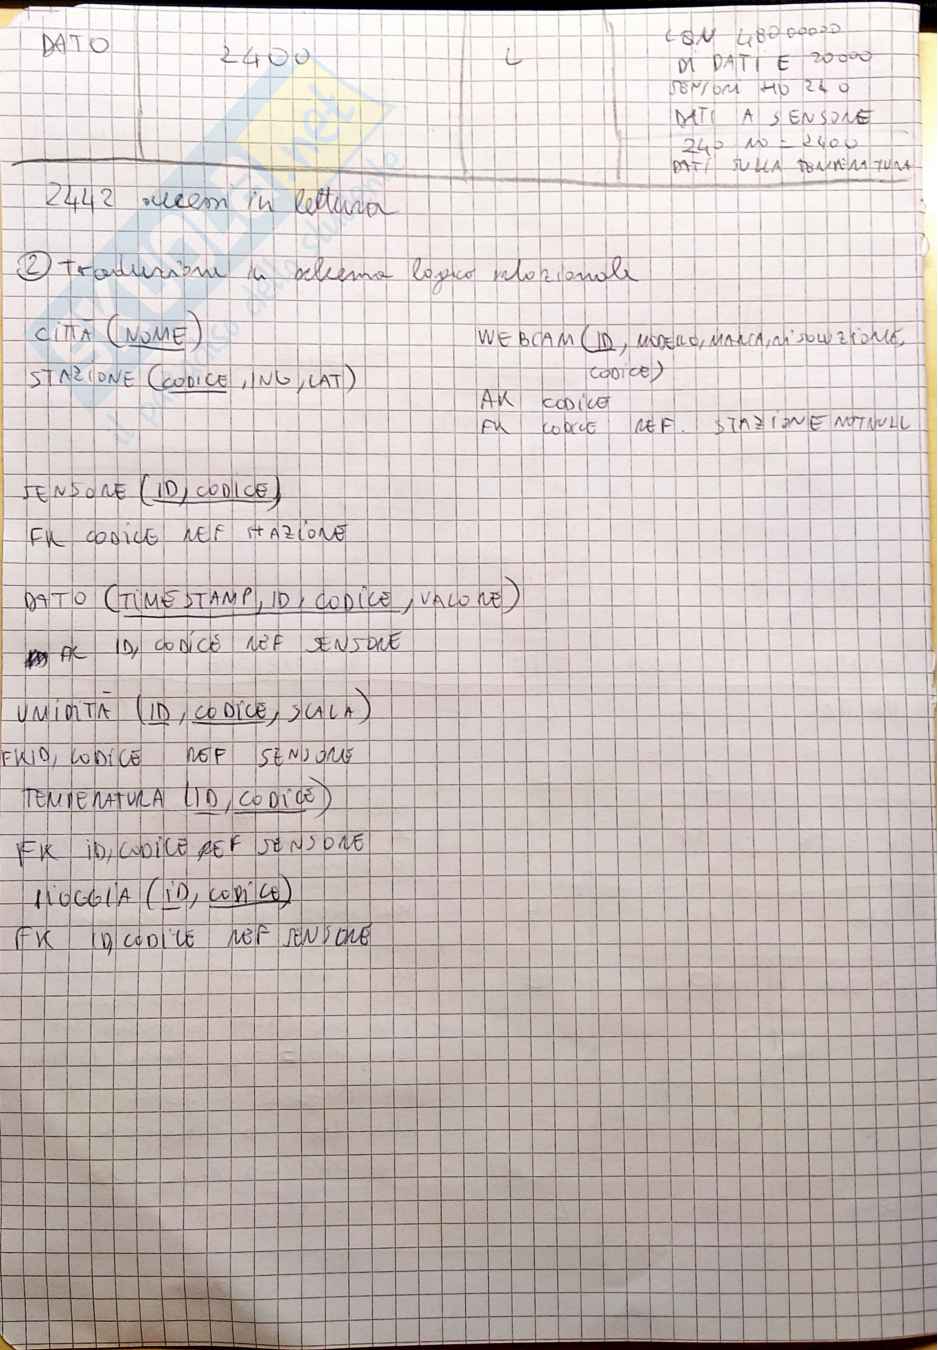 DATO 2400 L
CON 48000000
DI DATI E 20000
SENSORI HO 240
DATI A SENSORE
240 · 10 = 2400
DATI SULLA TEMPERATURA
2442 accessi in lettura
② Traduzione in schema logico relazionale
CITTÀ (NOME)
STAZIONE (CODICE, LNG, LAT)
WEBCAM (ID, MODELLO, MARCA, RISOLUZIONE,
CODICE)
AK CODICE
FK CODICE REF. STAZIONE NOT NULL
SENSORE (ID, CODICE)
FK CODICE REF STAZIONE
DATO (TIMESTAMP, ID, CODICE, VALORE)
FK ID, CODICE REF SENSORE
UMIDITÀ (ID, CODICE, SCALA)
FK ID, CODICE REF SENSORE
TEMPERATURA (ID, CODICE)
FK ID, CODICE REF SENSORE
PIOGGIA (ID, CODICE)
FK ID, CODICE REF SENSORE